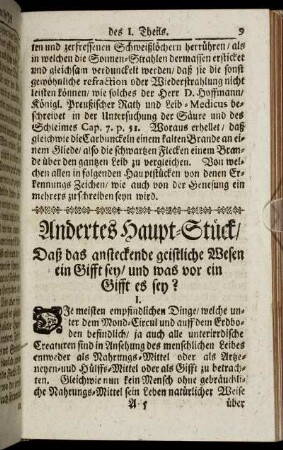 des I. Theils. 9
ten und zerfressenen Schweißlöchern herrühren / als
in welchen die Sonnen-Strahlen dermassen ersticket
und gleichsam verdunckelt werden / daß sie die sonst
gewöhnliche refraction oder Wiederstrahlung nicht
leisten können / wie solches der Herr D. Hoffmann /
Königl. Preußischer Rath und Leib-Medicus be-
schreibet in der Untersuchung der Säure und des
Schleimes Cap. 7. p. 51. Woraus erhellet / daß
gleichwie die Carbunckeln einem kalten Brande an ei-
nem Gliede / also die schwartzen Flecken einem Bran-
de über den gantzen Leib zu vergleichen. Von wel-
chen allen in folgenden Hauptstücken von denen Er-
kennungs Zeichen / wie auch von der Genesung ein
mehrers zu schreiben seyn wird.
Andertes Haupt-Stück /
Daß das ansteckende geistliche Wesen
ein Gifft sey / und was vor ein
Gifft es sey?
I.
DJe meisten empfindlichen Dinge / welche un-
ter dem Mond-Circul und auff dem Erdbo-
den befindlich / ja auch alle unterirrdische
Creaturen sind in Ansehung des menschlichen Leibes
entweder als Nahrungs-Mittel oder als Artze-
neyen-und Hülffs-Mittel oder als Gifft zu betrach-
ten. Gleichwie nun kein Mensch ohne gebräuckli-
che Nahrungs-Mittel sein Leben natürlicher Weise
A 5 über